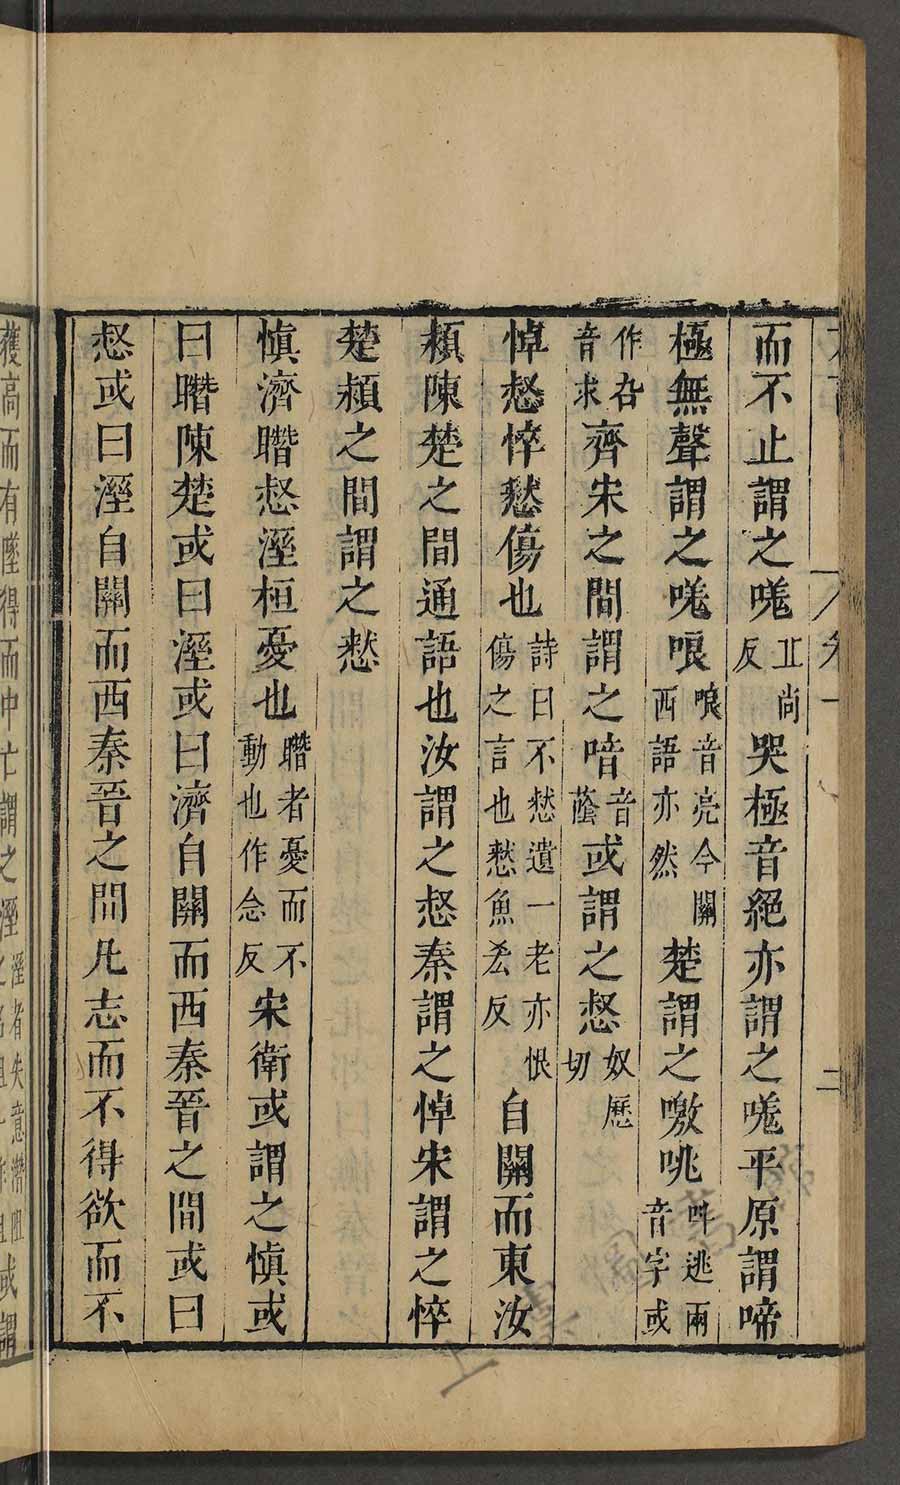 而不止謂之㗖丘尚反哭極音絕亦謂之㗖平原謂啼
極無聲謂之㗖哴哴音亮今關西語亦然楚謂之噭咷叫逃兩音字或
作㕦音求齊宋之間謂之喑音蔭或謂之惄奴歷切
悼惄悴憖傷也詩曰不憖遺一老亦恨傷之言也憖魚㕘反自關而東汝
潁陳楚之間通語也汝謂之惄秦謂之悼宋謂之悴
楚潁之間謂之憖
慎濟㬱惄溼桓憂也㬱者憂而不動也作念反宋衛或謂之慎或
曰㬱陳楚或曰溼或曰濟自關而西秦晉之間或曰
惄或曰溼自關而西秦晉之間凡志而不得欲而不
獲高而有墜得而中亡謂之溼溼者失意潛沮之名沮一作阻或謂